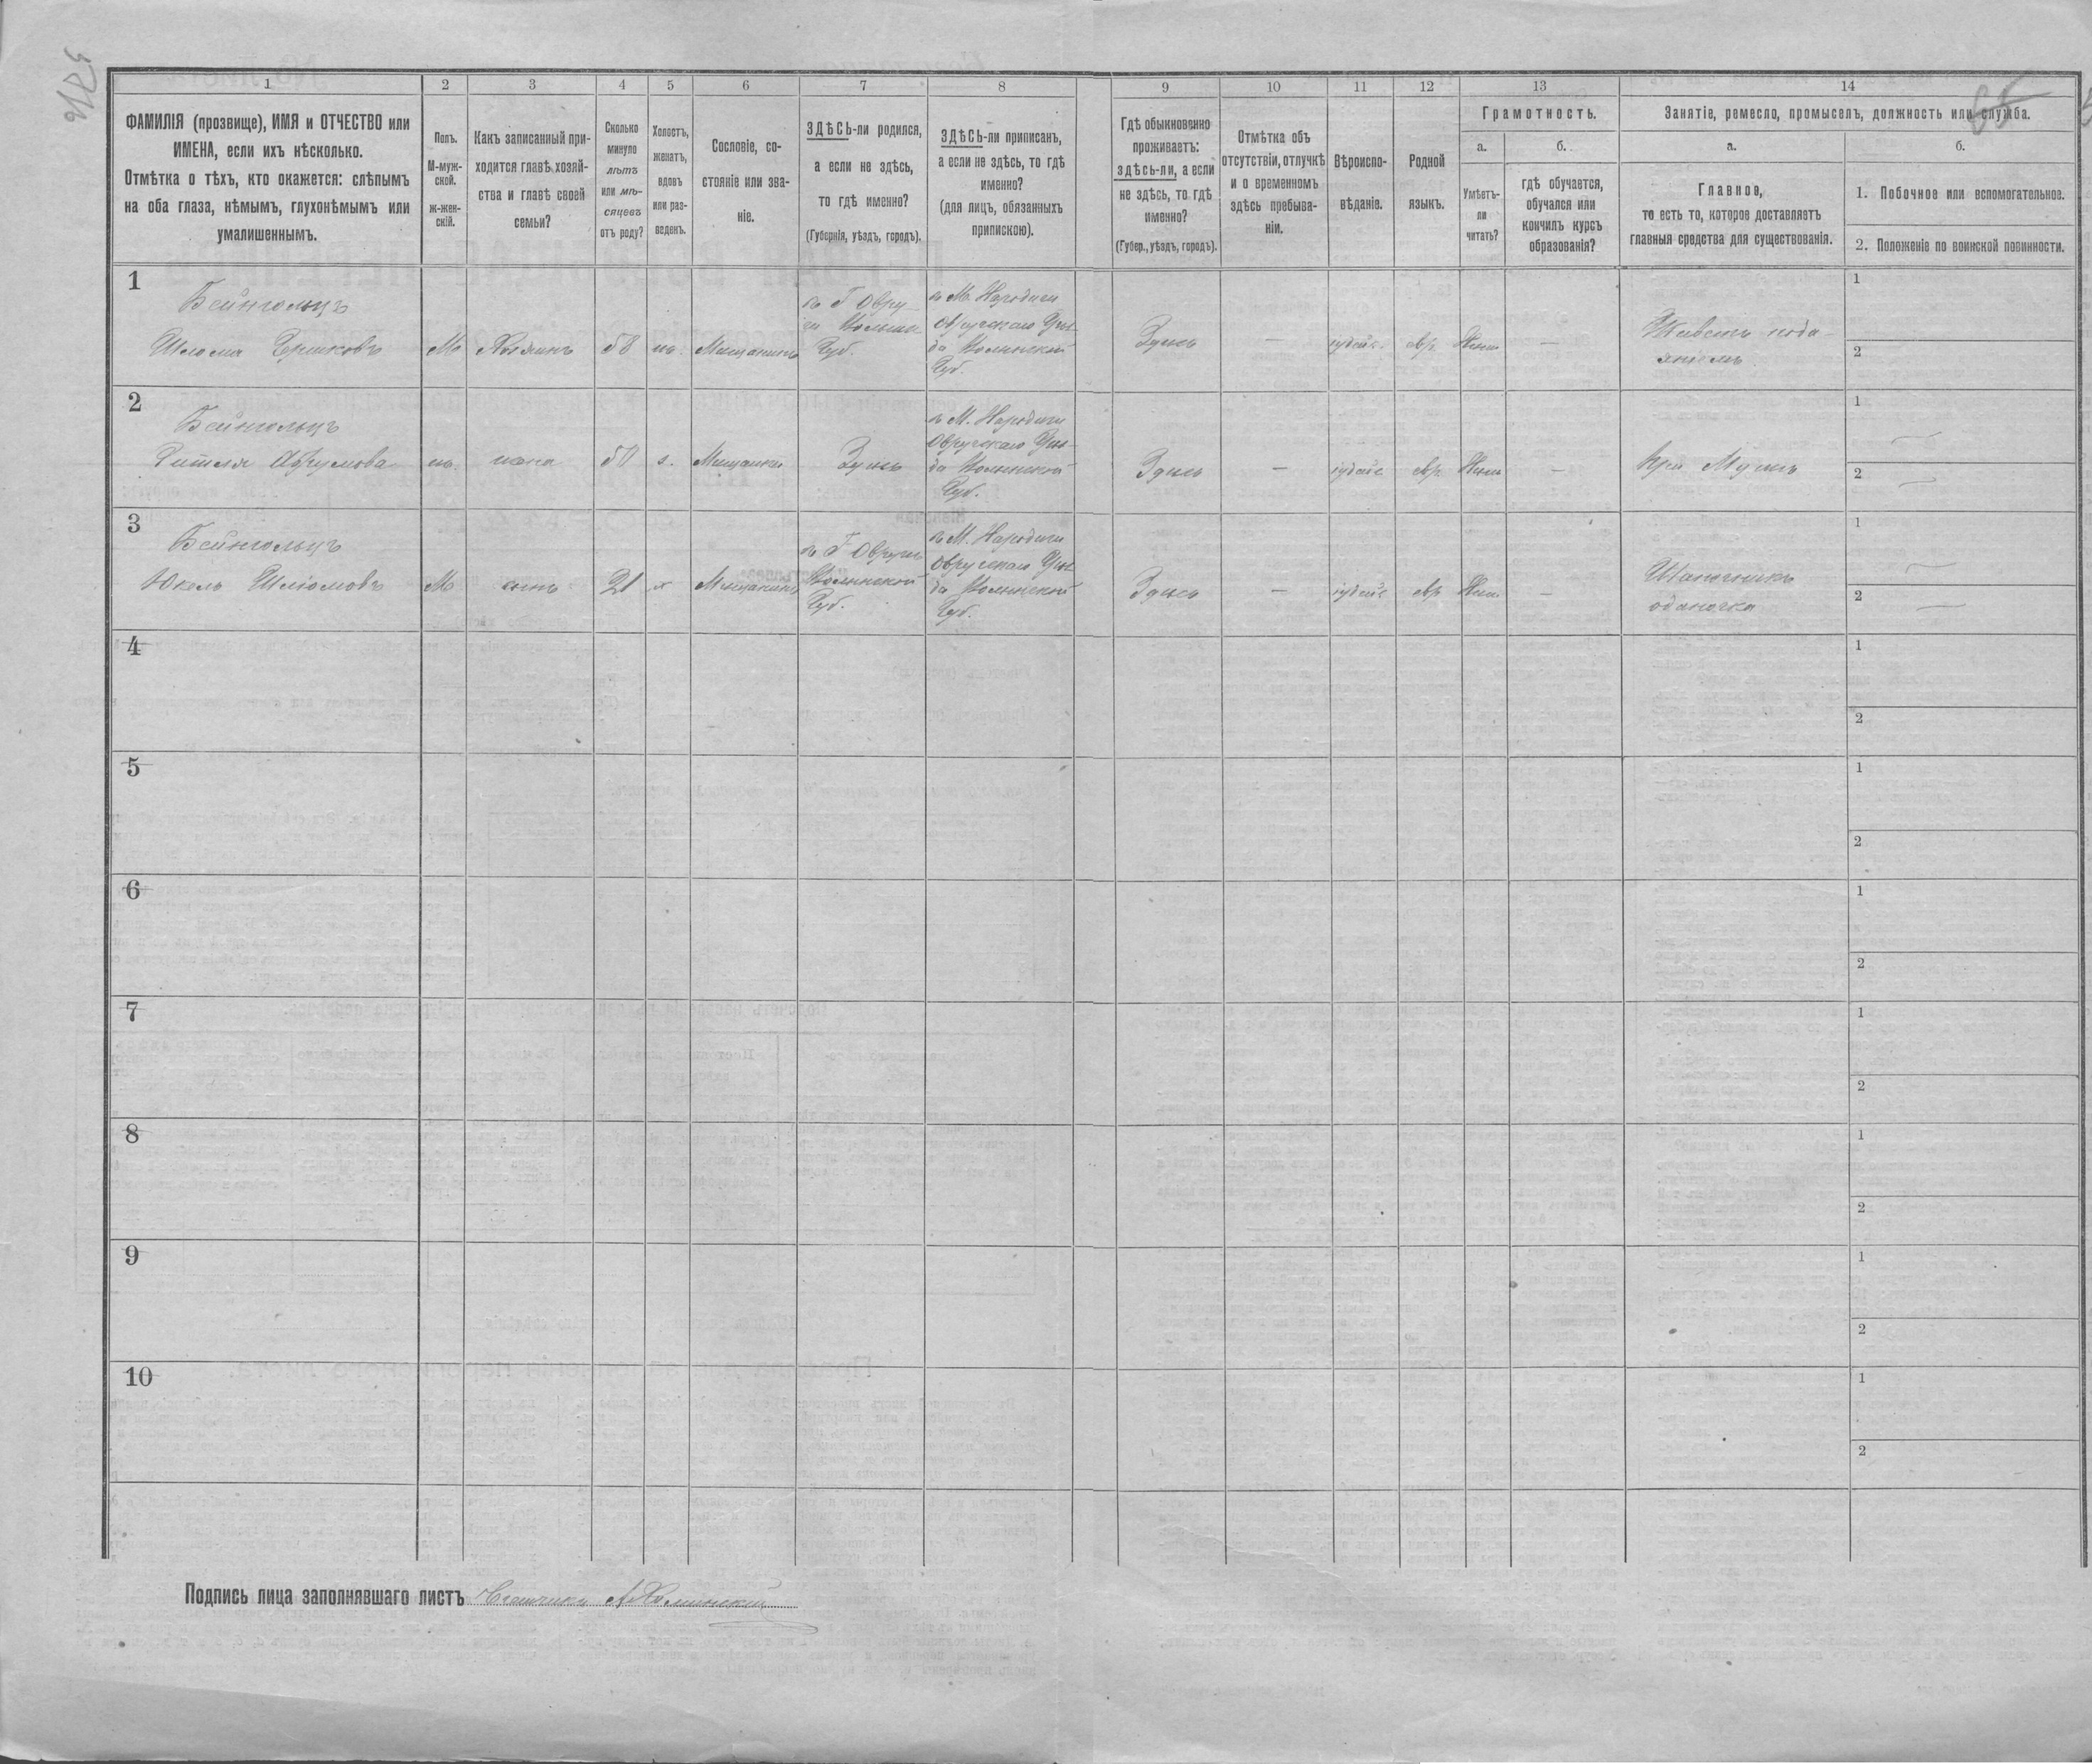 1
2
3
4
5
6
7
8
9
10
11
12
13
14
ФАМИЛІЯ (прозвище), ИМЯ и ОТЧЕСТВО или
ИМЕНА, если ихъ нѣсколько.
Отмѣтка о тѣхъ, кто окажется: слѣпымъ
на оба глаза, нѣмымъ, глухонѣмымъ или
умалишеннымъ.
Полъ.
М-муж-
ской.
ж-жен-
скій.
Какъ записанный при-
ходится главѣ хозяй-
ства и главѣ своей
семьи?
Сколько
минуло
лѣтъ
или мѣ-
сяцевъ
отъ роду?
Холостъ,
женатъ,
вдовъ
или раз-
веденъ.
Сословіе, со-
стояніе или зва-
ніе.
ЗДѢСЬ-ли родился,
а если не здѣсь,
то гдѣ именно?
(Губернія, уѣздъ, городъ).
ЗДѢСЬ-ли приписанъ,
а если не здѣсь, то гдѣ
именно?
(для лицъ, обязанныхъ
припискою).
Гдѣ обыкновенно
проживаетъ:
здѣсь-ли, а если
не здѣсь, то гдѣ
именно?
(Губер., уѣздъ, городъ).
Отмѣтка объ
отсутствіи, отлучкѣ
и о временномъ
здѣсь пребыва-
ніи.
Вѣроиспо-
вѣданіе.
Родной
языкъ.
Грамотность.
а.
б.
Умѣетъ-
ли
читать?
гдѣ обучается,
обучался или
кончилъ курсъ
образованія?
Занятіе, ремесло, промыселъ, должность или служба.
а.
б.
Главное,
то есть то, которое доставляетъ
главныя средства для существованія.
1. Побочное или вспомогательное.
2. Положеніе по воинской повинности.
1
Бейнгольцъ
Шлома
М
Хозяинъ
58
Мещанинъ
Губ.
М. Народичи
Овручскаго
Волынской
Губ.
Здѣсь
—
евр.
—
Живетъ пода-
яніемъ
1
2
2
Бейнгольцъ
жена
50
Мещанка
Здѣсь
М. Народичи
Овручскаго
Волынской
Губ.
Здѣсь
—
іудейс
евр.
—
При Мужѣ
1
2
3
Бейнгольцъ
Шліомовъ
М
сынъ
21
х
Мещанинъ
Волынской
Губ.
М. Народичи
Овручскаго
Волынской
Губ.
Здѣсь
—
іудейс
евр
—
Шапочникъ
одиночка
1
2
4
1
2
5
1
2
6
1
2
7
1
2
8
1
2
9
1
2
10
1
2
Подпись лица заполнявшаго листъ Счетчикъ